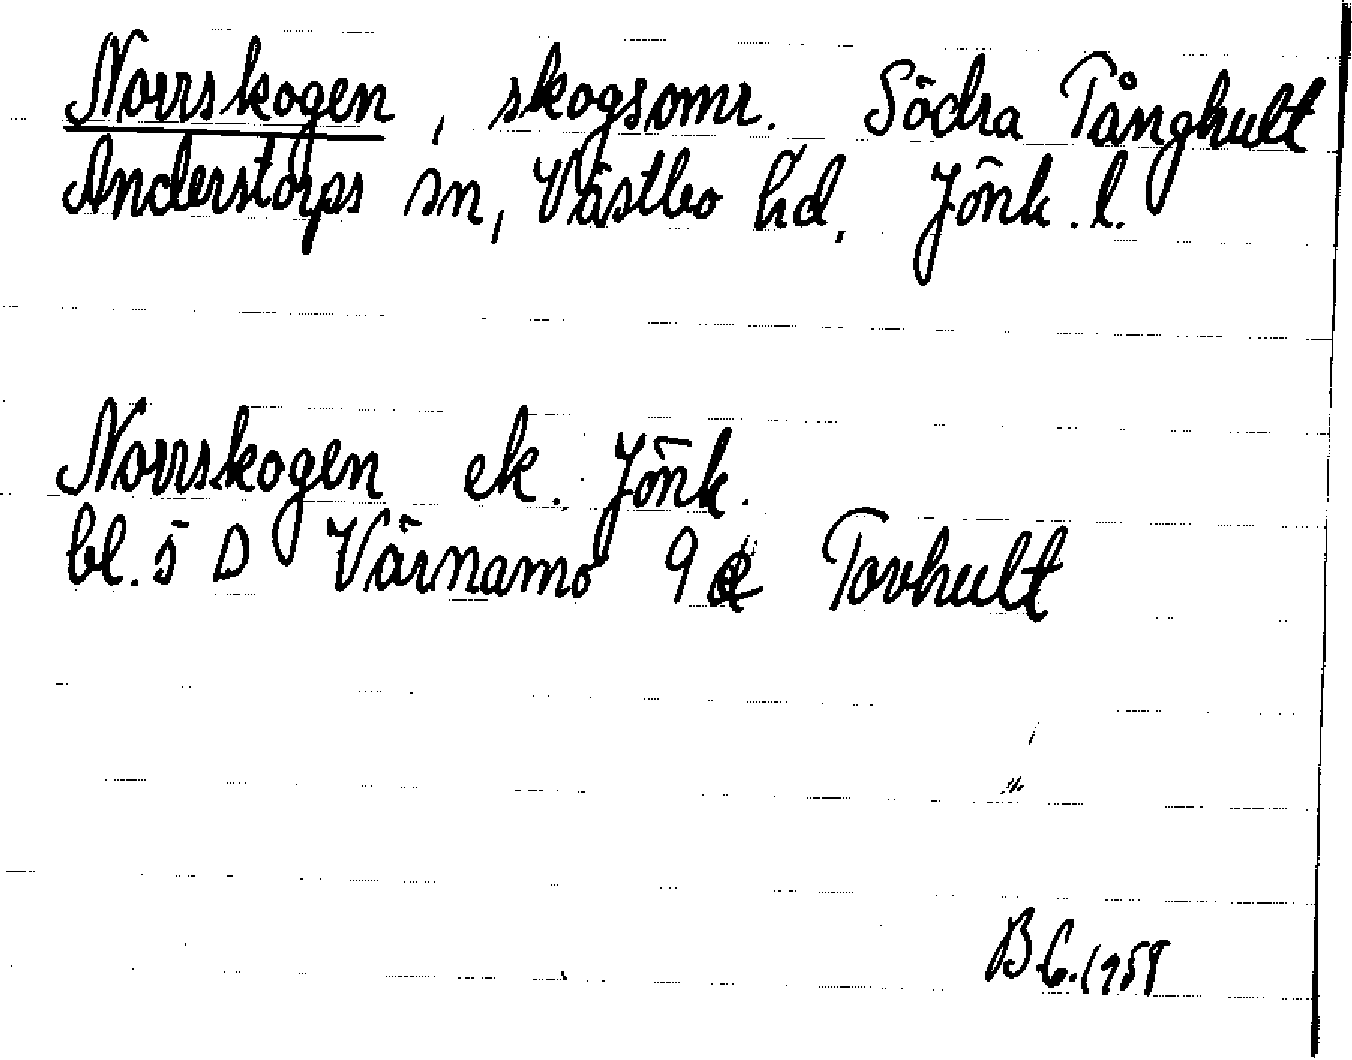 Norrskogen, skogsomr. Södra Tånghult
Anderstorps sn, Västbo hd. Jönk. l.
Norrskogen ek. Jönk.
bl. 5 D Värnamo 9 a Tovhult
B C. 1959